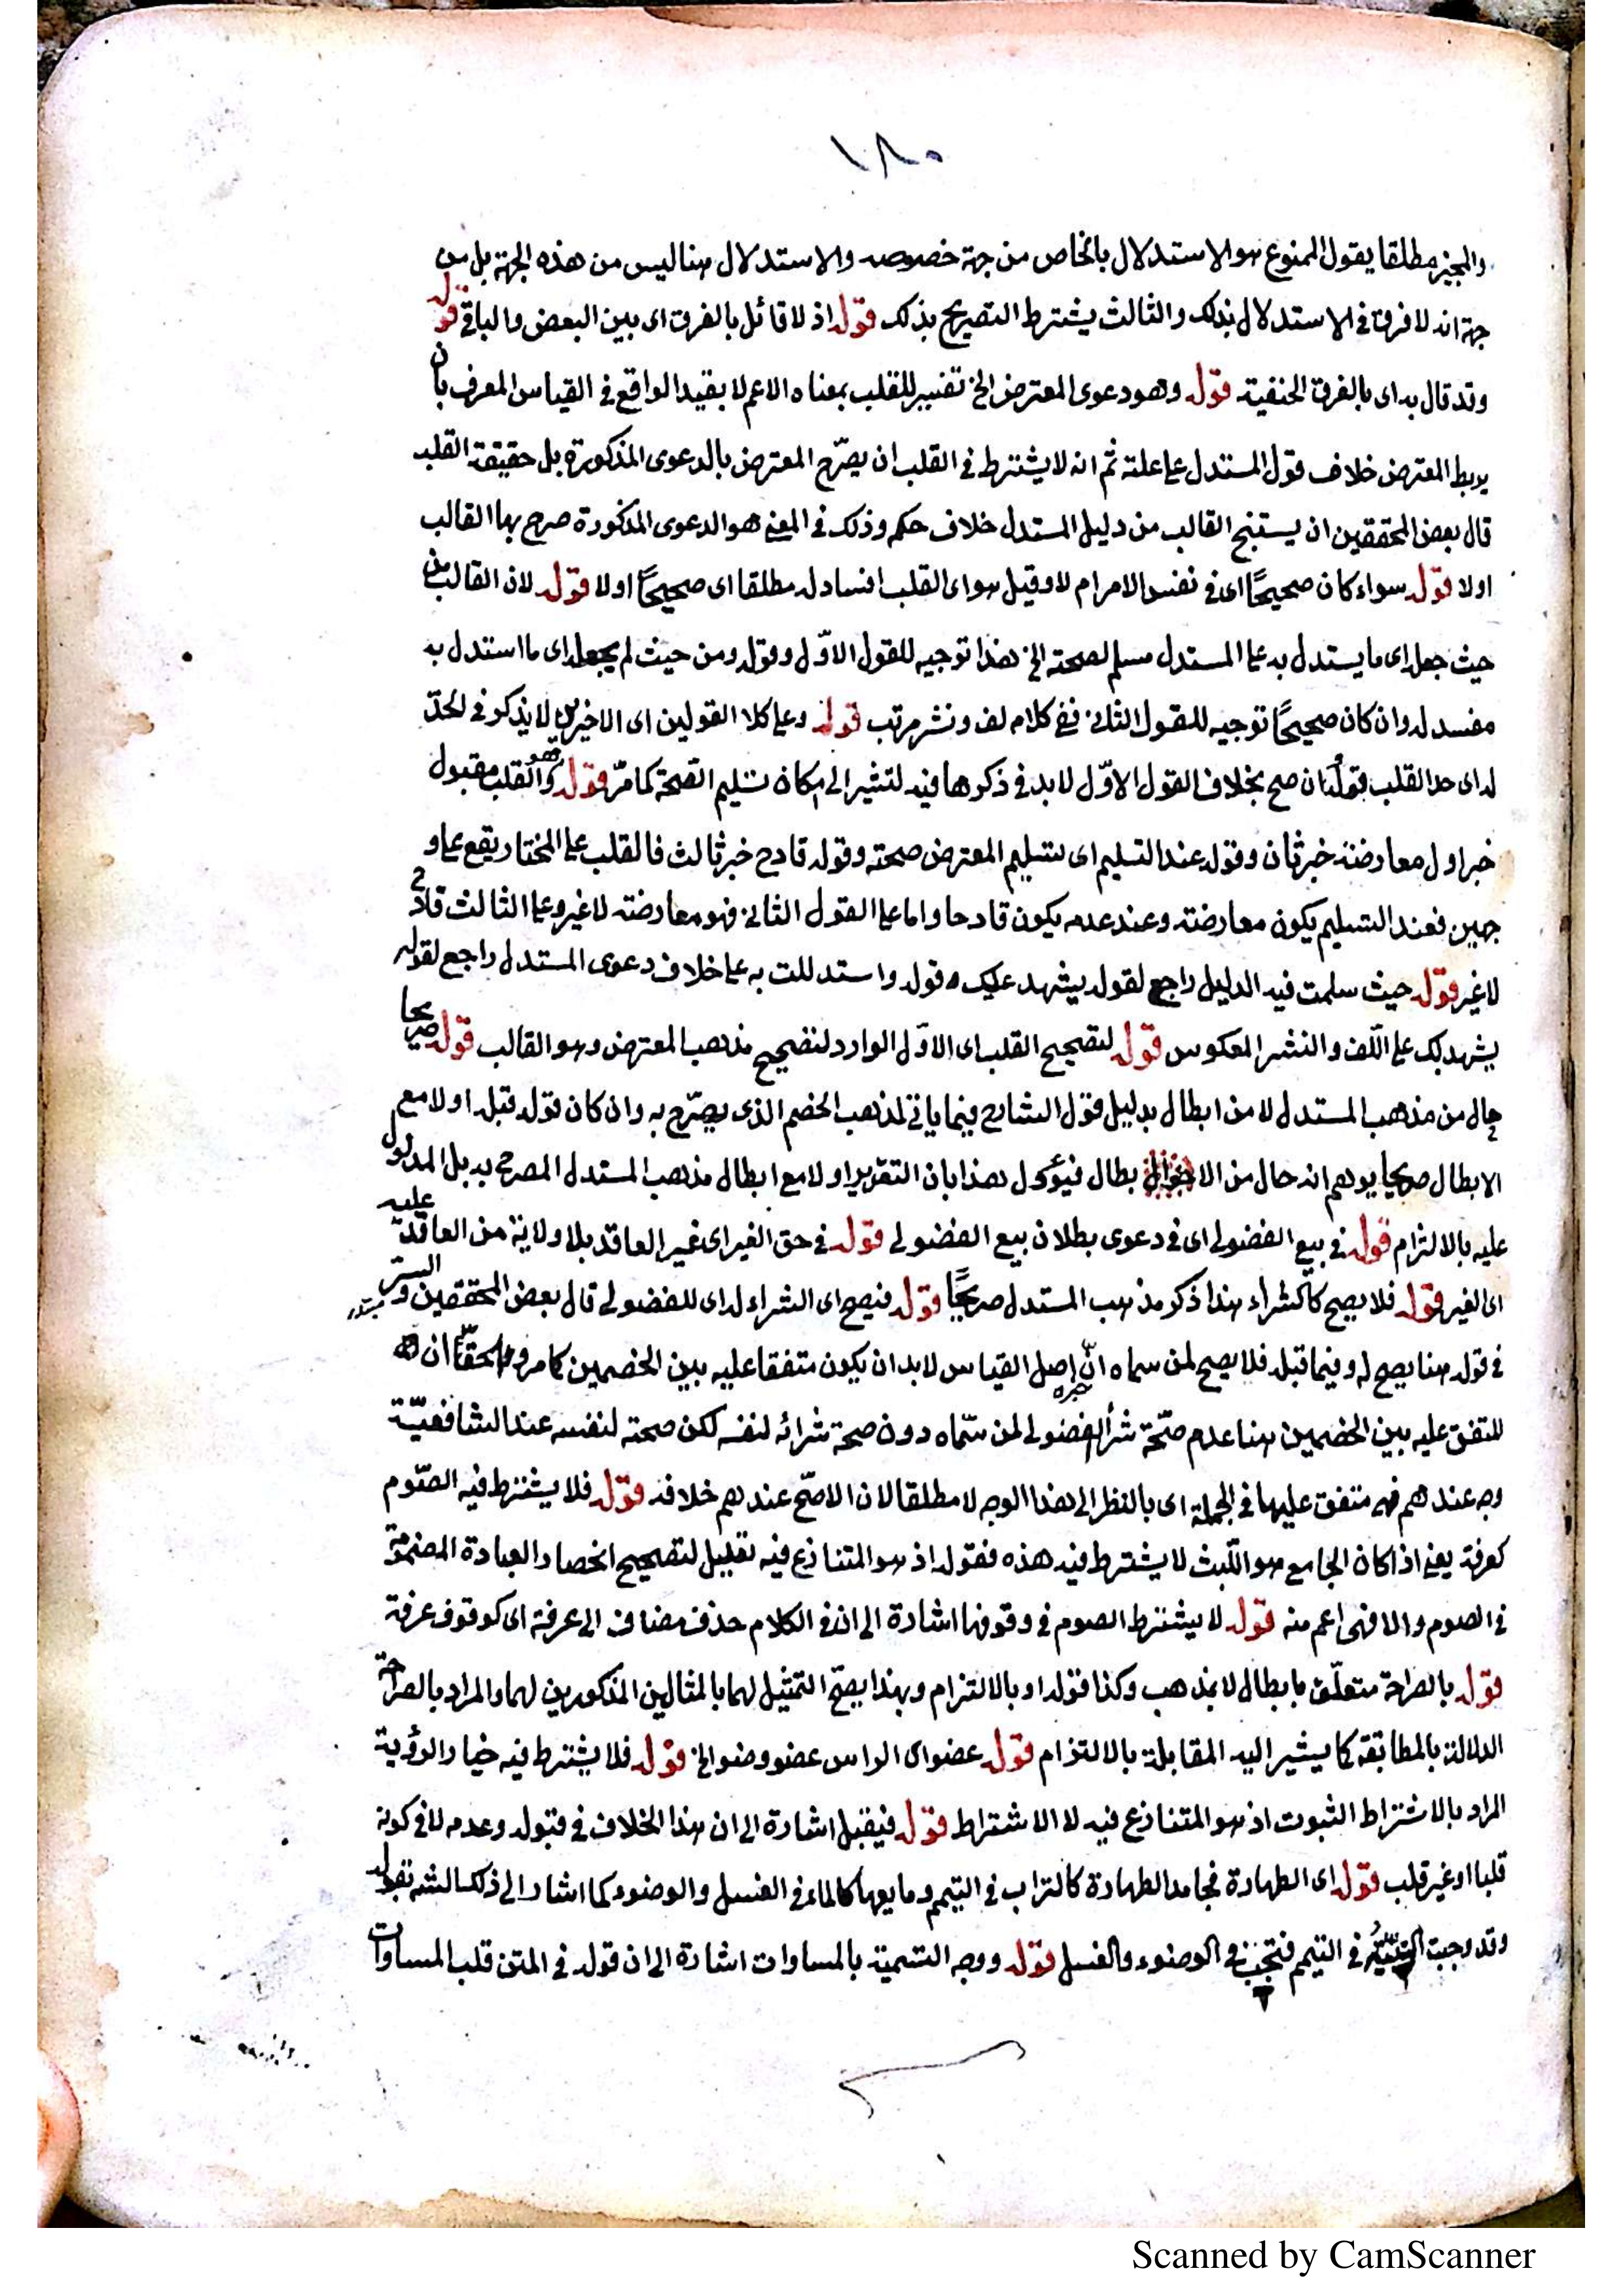 ١٨٠
والمجيز مطلقا يقول الممنوع هو الاستدلال بالخاص من جهة خصوصه والاستدلال هنا ليس من هذه الجهة بل من
جهة انه لا فرق في الاستدلال بذلك والثالث يشترط التصريح بذلك قوله اذ لا قائل بالفرق اى بين البعض والباقى قوله
وقد قال به اى بالفرق الحنفية قوله وهو دعوى المعترض الخ تفسير للقلب بمعناه الاعم لا بقيد الواقع في القياس المعرف بان
يربط المعترض خلاف قول المستدل على علته ثم انه لا يشترط في القلب ان يصرّح المعترض بالدعوى المذكورة بل حقيقة القلب
قال بعض المحققين ان يستنتج القالب من دليل المستدل خلاف حكمه وذلك في المعنى هو الدعوى المذكورة صرح بها القالب
اولا قوله سواء كان صحيحًا اى في نفس الامر ام لا وقيل هو اى القلب افساد له مطلقا اى صحيحًا اولا قوله لان القالب من
حيث جعله اى ما يستدل به على المستدل مسلم لصحته الخ هذا توجيه للقول الاوّل وقوله ومن حيث لم يجعله اى ما استدل به
مفسد له وان كان صحيحًا توجيه للقول الثانى ففى كلامه لف ونشر مرتب قوله وعلى كلا القولين اى الاخيرين لا يذكر في الحدّ
له اى حد القلب قوله ان صح بخلاف القول الاوّل لا بد في ذكرها فيه لتشير الى امكان تسليم الصحة كما مرّ قوله وهو القلب مقبول
خبر اول معارضة خبر ثان وقوله عند التسليم اى تسليم المعترض صحته وقوله قادح خبر ثالث فالقلب على المختار يقع على و
جهين فعند التسليم يكون معارضة وعند عدمه يكون قادحا واما على القول الثانى فهو معارضة لا غير وعلى الثالث قادح
لا غير قوله حيث سلمت فيه الدليل راجع لقوله يشهد عليك وقوله واستدللت به على خلاف دعوى المستدل راجع لقوله
يشهد لك على اللّف والنشر المعكوس قوله لتصحيح القلب اى الاوّل الوارد لتصحيح مذهب المعترض وهو القالب قوله صريحا
حال من مذهب المستدل لا من ابطال بدليل قول الشارح فيما ياتى لمذهب الخصم الذى يصرّح به وان كان قوله قبله اولا مع
الابطال صريحا يوهم انه حال من الابطال فيؤول هذا بان التقدير اولا مع ابطال مذهب المستدل المصرح به بل المدلول
عليه بالالتزام قوله في بيع الفضولى اى في دعوى بطلان بيع الفضولى قوله في حق الغير اى غير العاقد بلا ولاية من العاقد عليه
اى الغير قوله فلا يصح كالشراء هذا ذكر مذهب المستدل صريحًا قوله فيصح اى الشراء له اى للفضولى قال بعض المحققين والسرّ
في قوله هنا يصح له وفيما قبله فلا يصح لمن سماه انّ اصل القياس لا بد ان يكون متفقا عليه بين الخصمين كما مر
المتفق عليه بين الخصمين هنا عدم صحّة شراء الفضولى لمن سمّاه دون صحة شرائه لنفسه لكن صحته لنفسه عند الشافعيّة
وجه عندهم فهى متفق عليها في الجملة اى بالنظر الى هذا الوجه لا مطلقا لان الاصّح عندهم خلافه قوله فلا يشترط فيه الصّوم
كعرفة يعنى اذا كان الجامع هو اللّبث لا يشترط فيه هذه فقوله اذ هو المتنازع فيه تعليل لتصحيح انحصار العبادة المضمومة
في الصوم والا فهى اعم منه قوله لا يشترط الصوم في وقوفها اشارة الى ان في الكلام حذف مضاف الى عرفة اى كوقوف عرفة
قوله بالصراحة متعلّق بابطال لا بمذهب وكذا قوله او بالالتزام وبهذا يصحّ التمثيل لهما بالمثالين المذكورين لهما والمراد بالصراحة
الدلالة بالمطابقة كما يشير اليه المقابلة بالالتزام قوله عضو اى الراس عضو وضو الخ قوله فلا يشترط فيه خيار الرؤية
المراد بالاشتراط الثبوت اذ هو المتنازع فيه لا الاشتراط قوله فيقبل اشارة الى ان هذا الخلاف في قبوله وعدمه لا في كونه
قلبا او غير قلب قوله اى الطهارة فجامد الطهارة كالتراب في التيمم ومايعها كالماء في الغسل والوضوء كما اشار الى ذلك الشه بقوله
وقد وجبت النيّة في التيمم فتجب في الوضوء والغسل قوله ووجه التسمية بالمساوات اشارة الى ان قوله في المتن قلب المساوات
Scanned by CamScanner